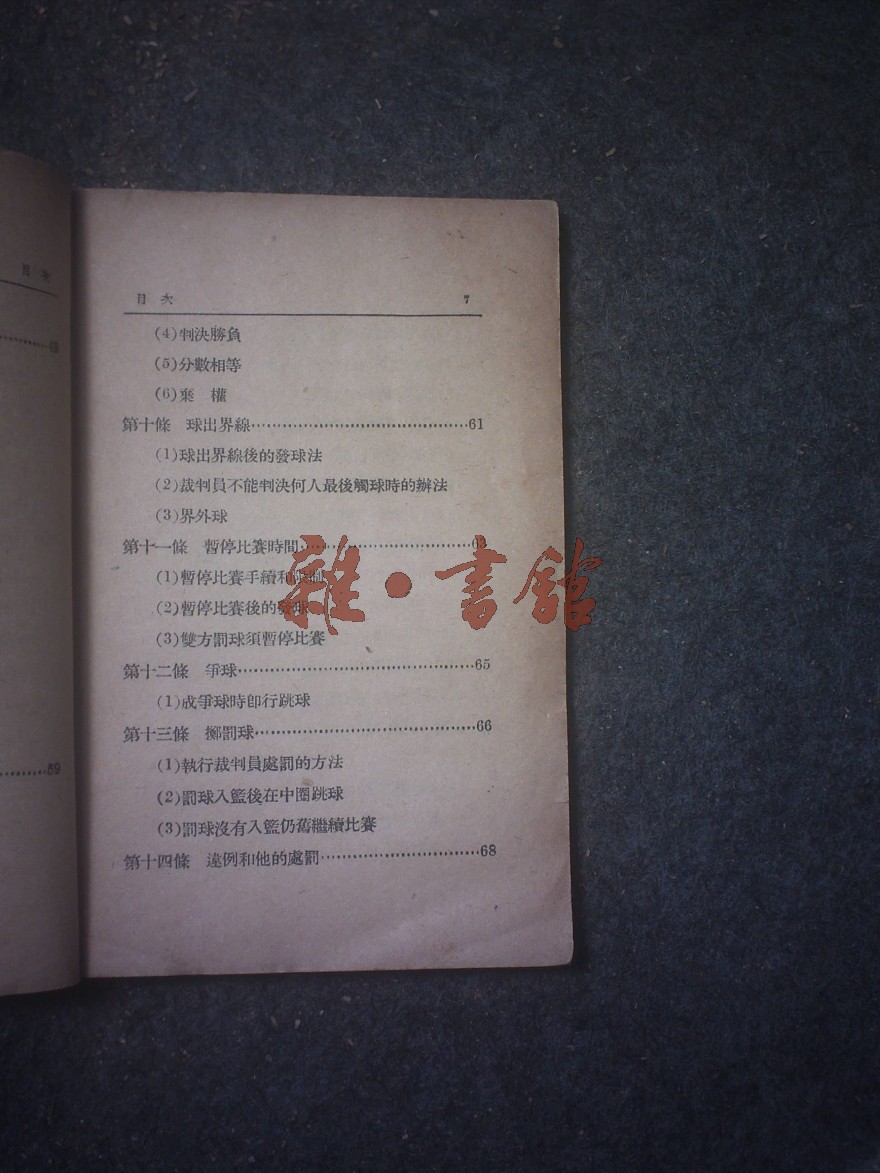 目次
49
59
目次 7
(4)判決勝負
(5)分數相等
(6)棄 權
第十條 球出界線……………………………………61
(1)球出界線後的發球法
(2)裁判員不能判決何人最後觸球時的辦法
(3)界外球
第十一條 暫停比賽時間……………………………63
(1)暫停比賽手續和限制
(2)暫停比賽後的發球
(3)雙方罰球須暫停比賽
第十二條 爭球………………………………………65
(1)成爭球時卽行跳球
第十三條 擲罰球……………………………………66
(1)執行裁判員處罰的方法
(2)罰球入籃後在中圈跳球
(3)罰球沒有入籃仍舊繼續比賽
第十四條 違例和他的處罰…………………………68
雜·書館